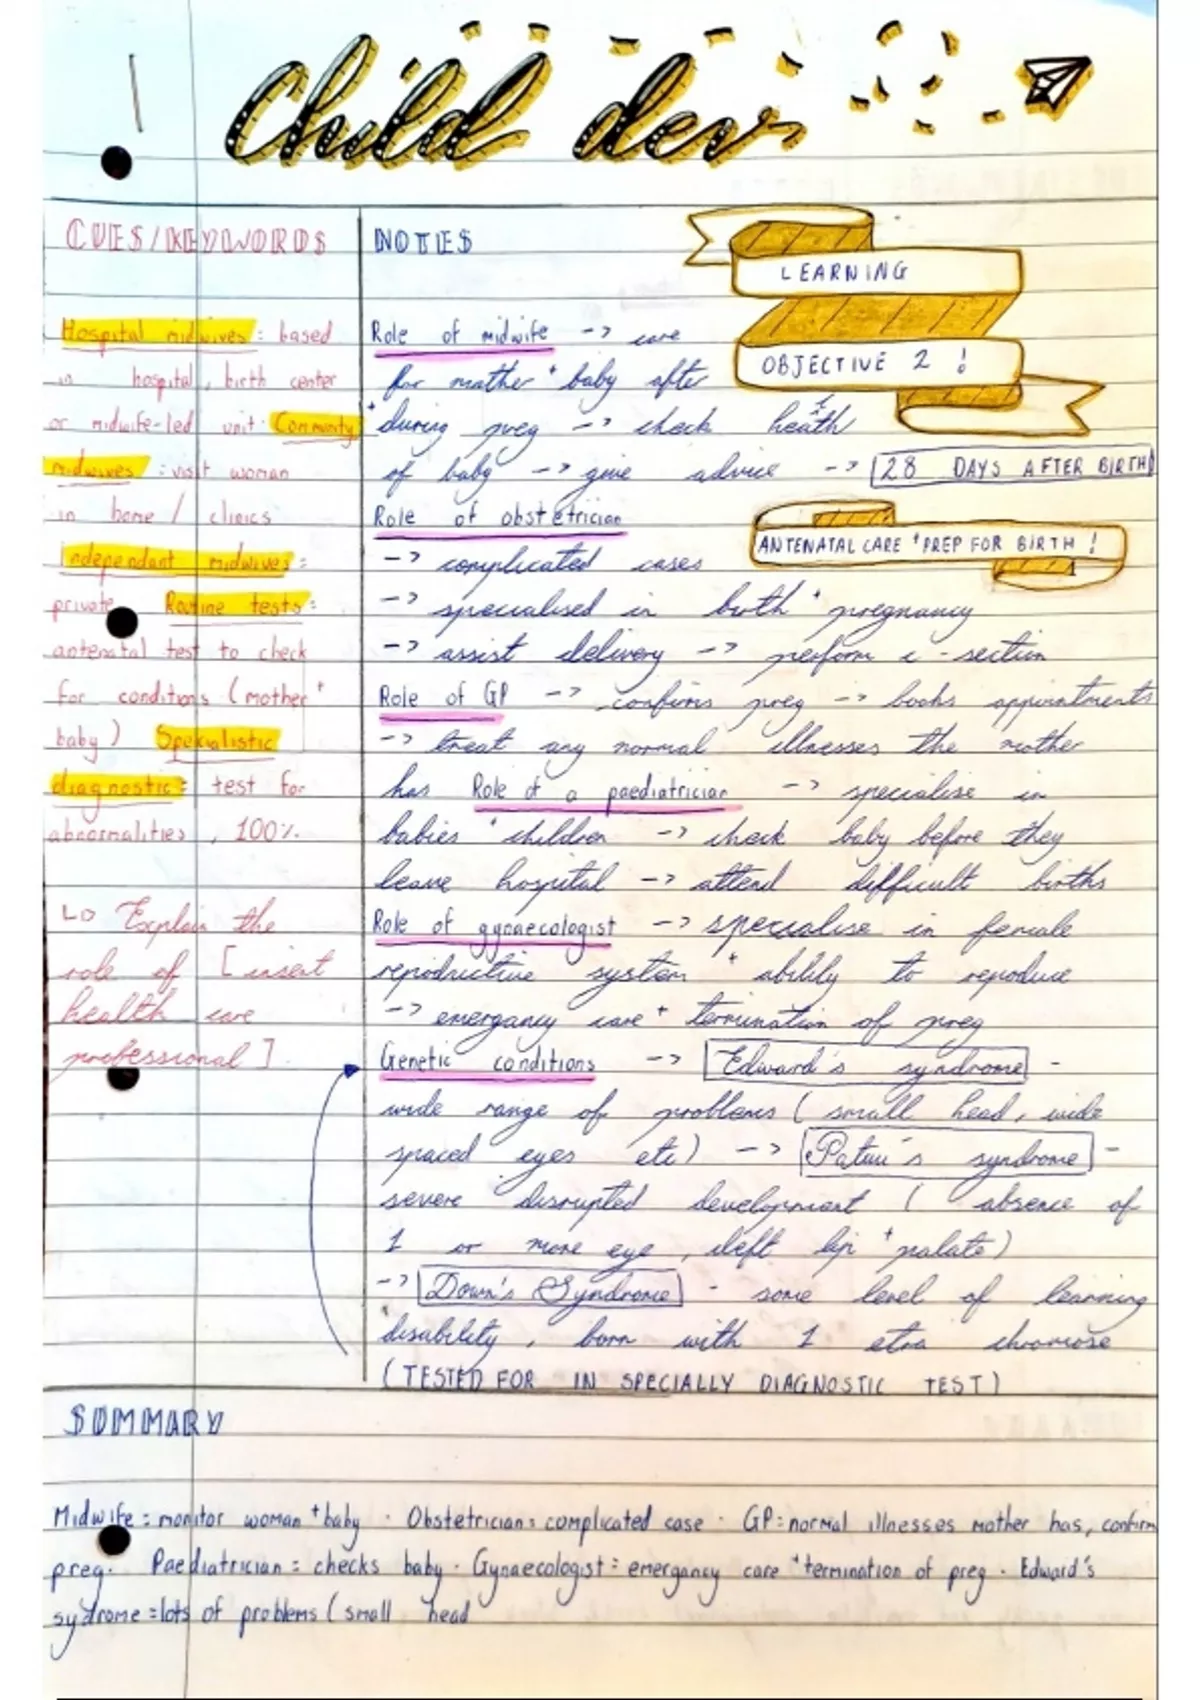 ! Child dev
CUES/KEYWORDS
Hospital midwives: based
in hospital, birth center
or midwife-led unit. Community
midwives: visit woman
in home / clinics
independant midwives:
private Routine tests:
antenatal test to check
for conditions (mother +
baby) Specialistic
diagnostic: test for
abnormalities, 100%
LO Explain the
role of [insert
health care
professional].
NOTES
LEARNING
OBJECTIVE 2 !
Role of midwife -> care
for mother + baby after
+ during preg -> check heath
of baby -> give advice -> 28 DAYS AFTER BIRTH
ANTENATAL CARE + PREP FOR BIRTH !
Role of obstetrician
-> complicated cases
-> specialised in birth + pregnancy
-> assist delivery -> preform c-section
Role of GP -> confirms preg -> books appointments
-> treat any normal illnesses the mother
has Role of a paediatrician -> specialise in
babies + children -> check baby before they
leave hospital -> attend difficult births
Role of gynaecologist -> specialise in female
reproductive system + ability to reproduce
-> emergancy care + termination of preg
Genetic conditions -> Edward's syndrome -
wide range of problems (small head, wide
spaced eyes etc) -> Patau's syndrome -
severe disrupted development (absence of
1 or more eye, cleft lip + palate)
-> Down's Syndrome - some level of learning
disability, born with 1 etra chromose
(TESTED FOR IN SPECIALLY DIAGNOSTIC TEST)
SUMMARY
Midwife: monitor woman + baby · Obstetrician: complicated case · GP: normal illnesses mother has, confirm
preg. Paediatrician = checks baby · Gynaecologist = emergancy care + termination of preg · Edward's
sydrome = lots of problems (small head